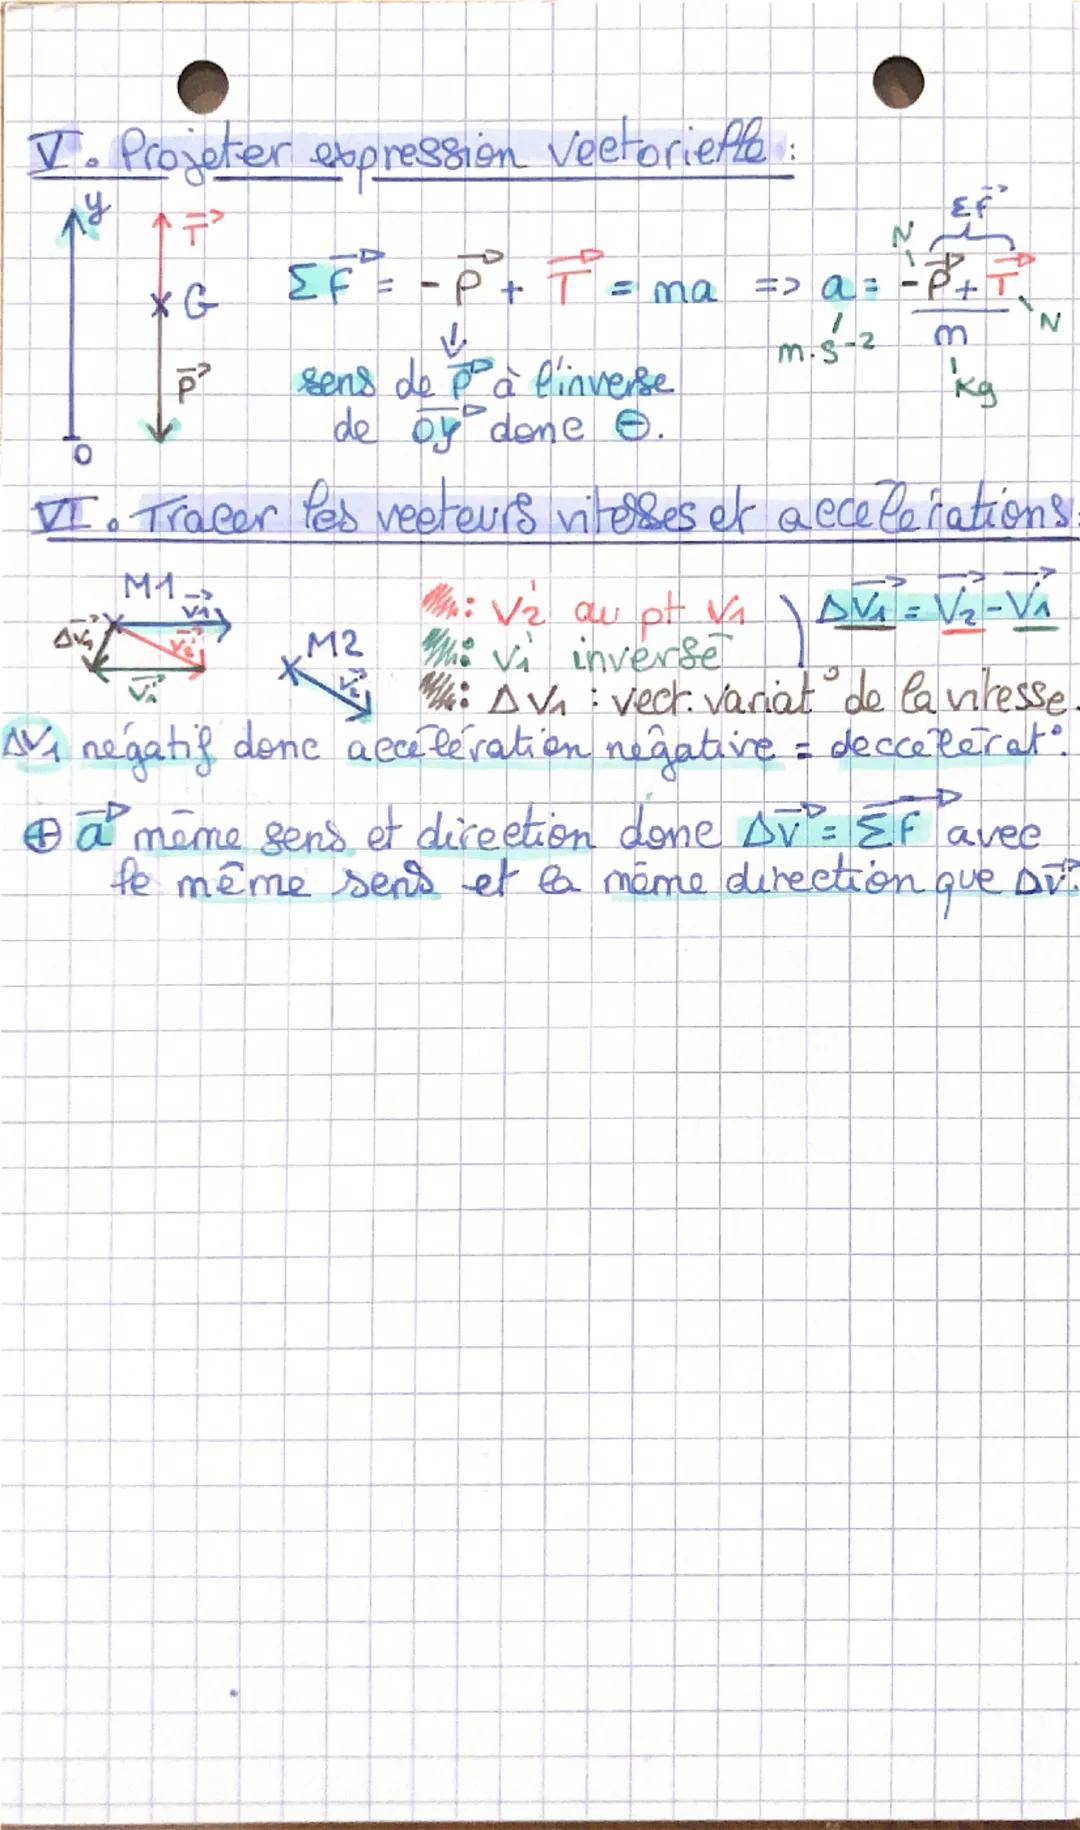 V. Projeter expression vectorielle :
y
T→
G
P→
O
ΣF→ = - P→ + T→ = ma => a = (-P→ + T→)/m
ΣF→
N
N
m.s-2
kg
↓
sens de P→ à l'inverse
de oy→ donc ⊖.
VI. Tracer les vecteurs vitesses et accelerations:
M1
V1→
ΔV1→
V2→
V1→
M2
V2→
: V2 au pt V1
: V1 inversé
: ΔV1 : vect. variat° de la vitesse.
ΔV1→ = V2→ - V1→
ΔV1 négatif donc accélération négative = deccélérat°.
⊕ a→ même sens et direction donc ΔV→ = ΣF→ avec
le même sens et la même direction que ΔV→.